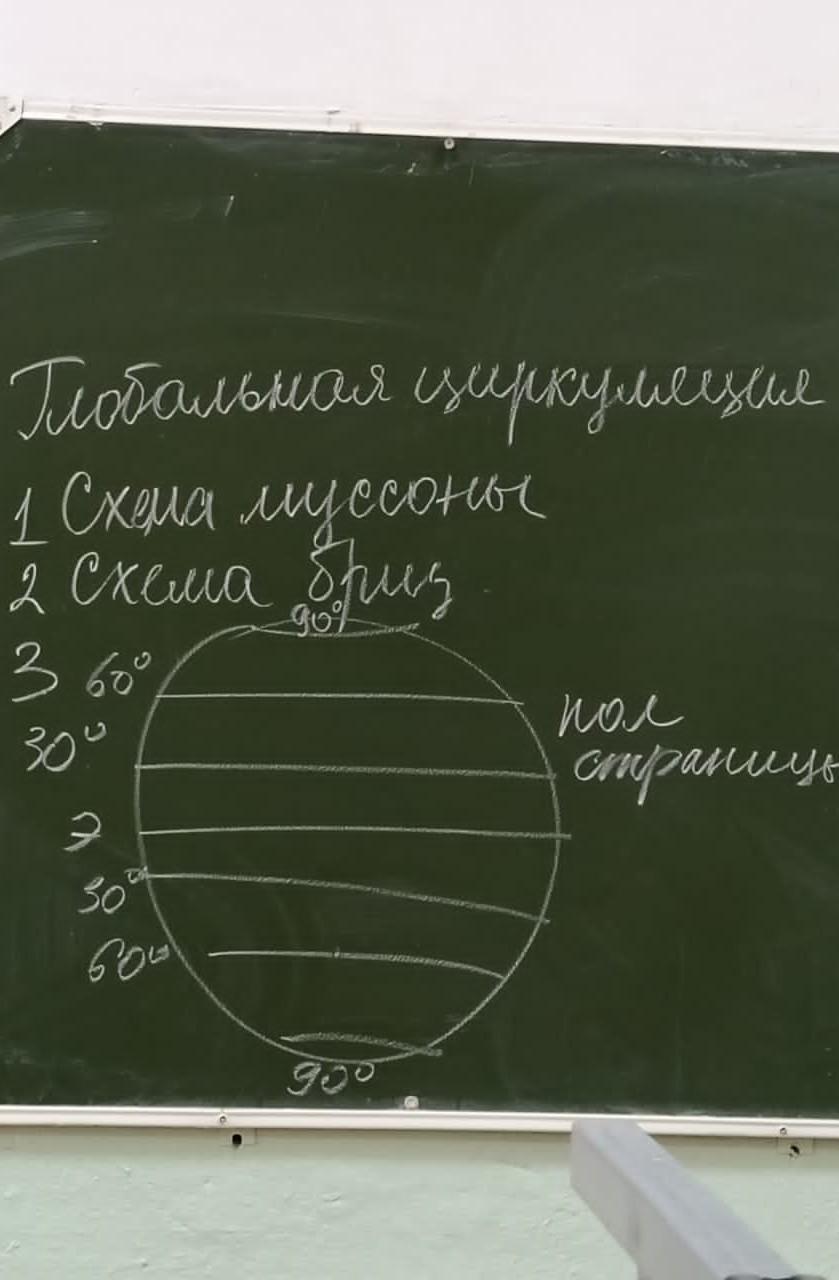 Глобальная циркуляция
1 Схема муссоны
2 Схема бриз
90°
3 60°
пол
30°
страницы
Э
30°
60°
90°